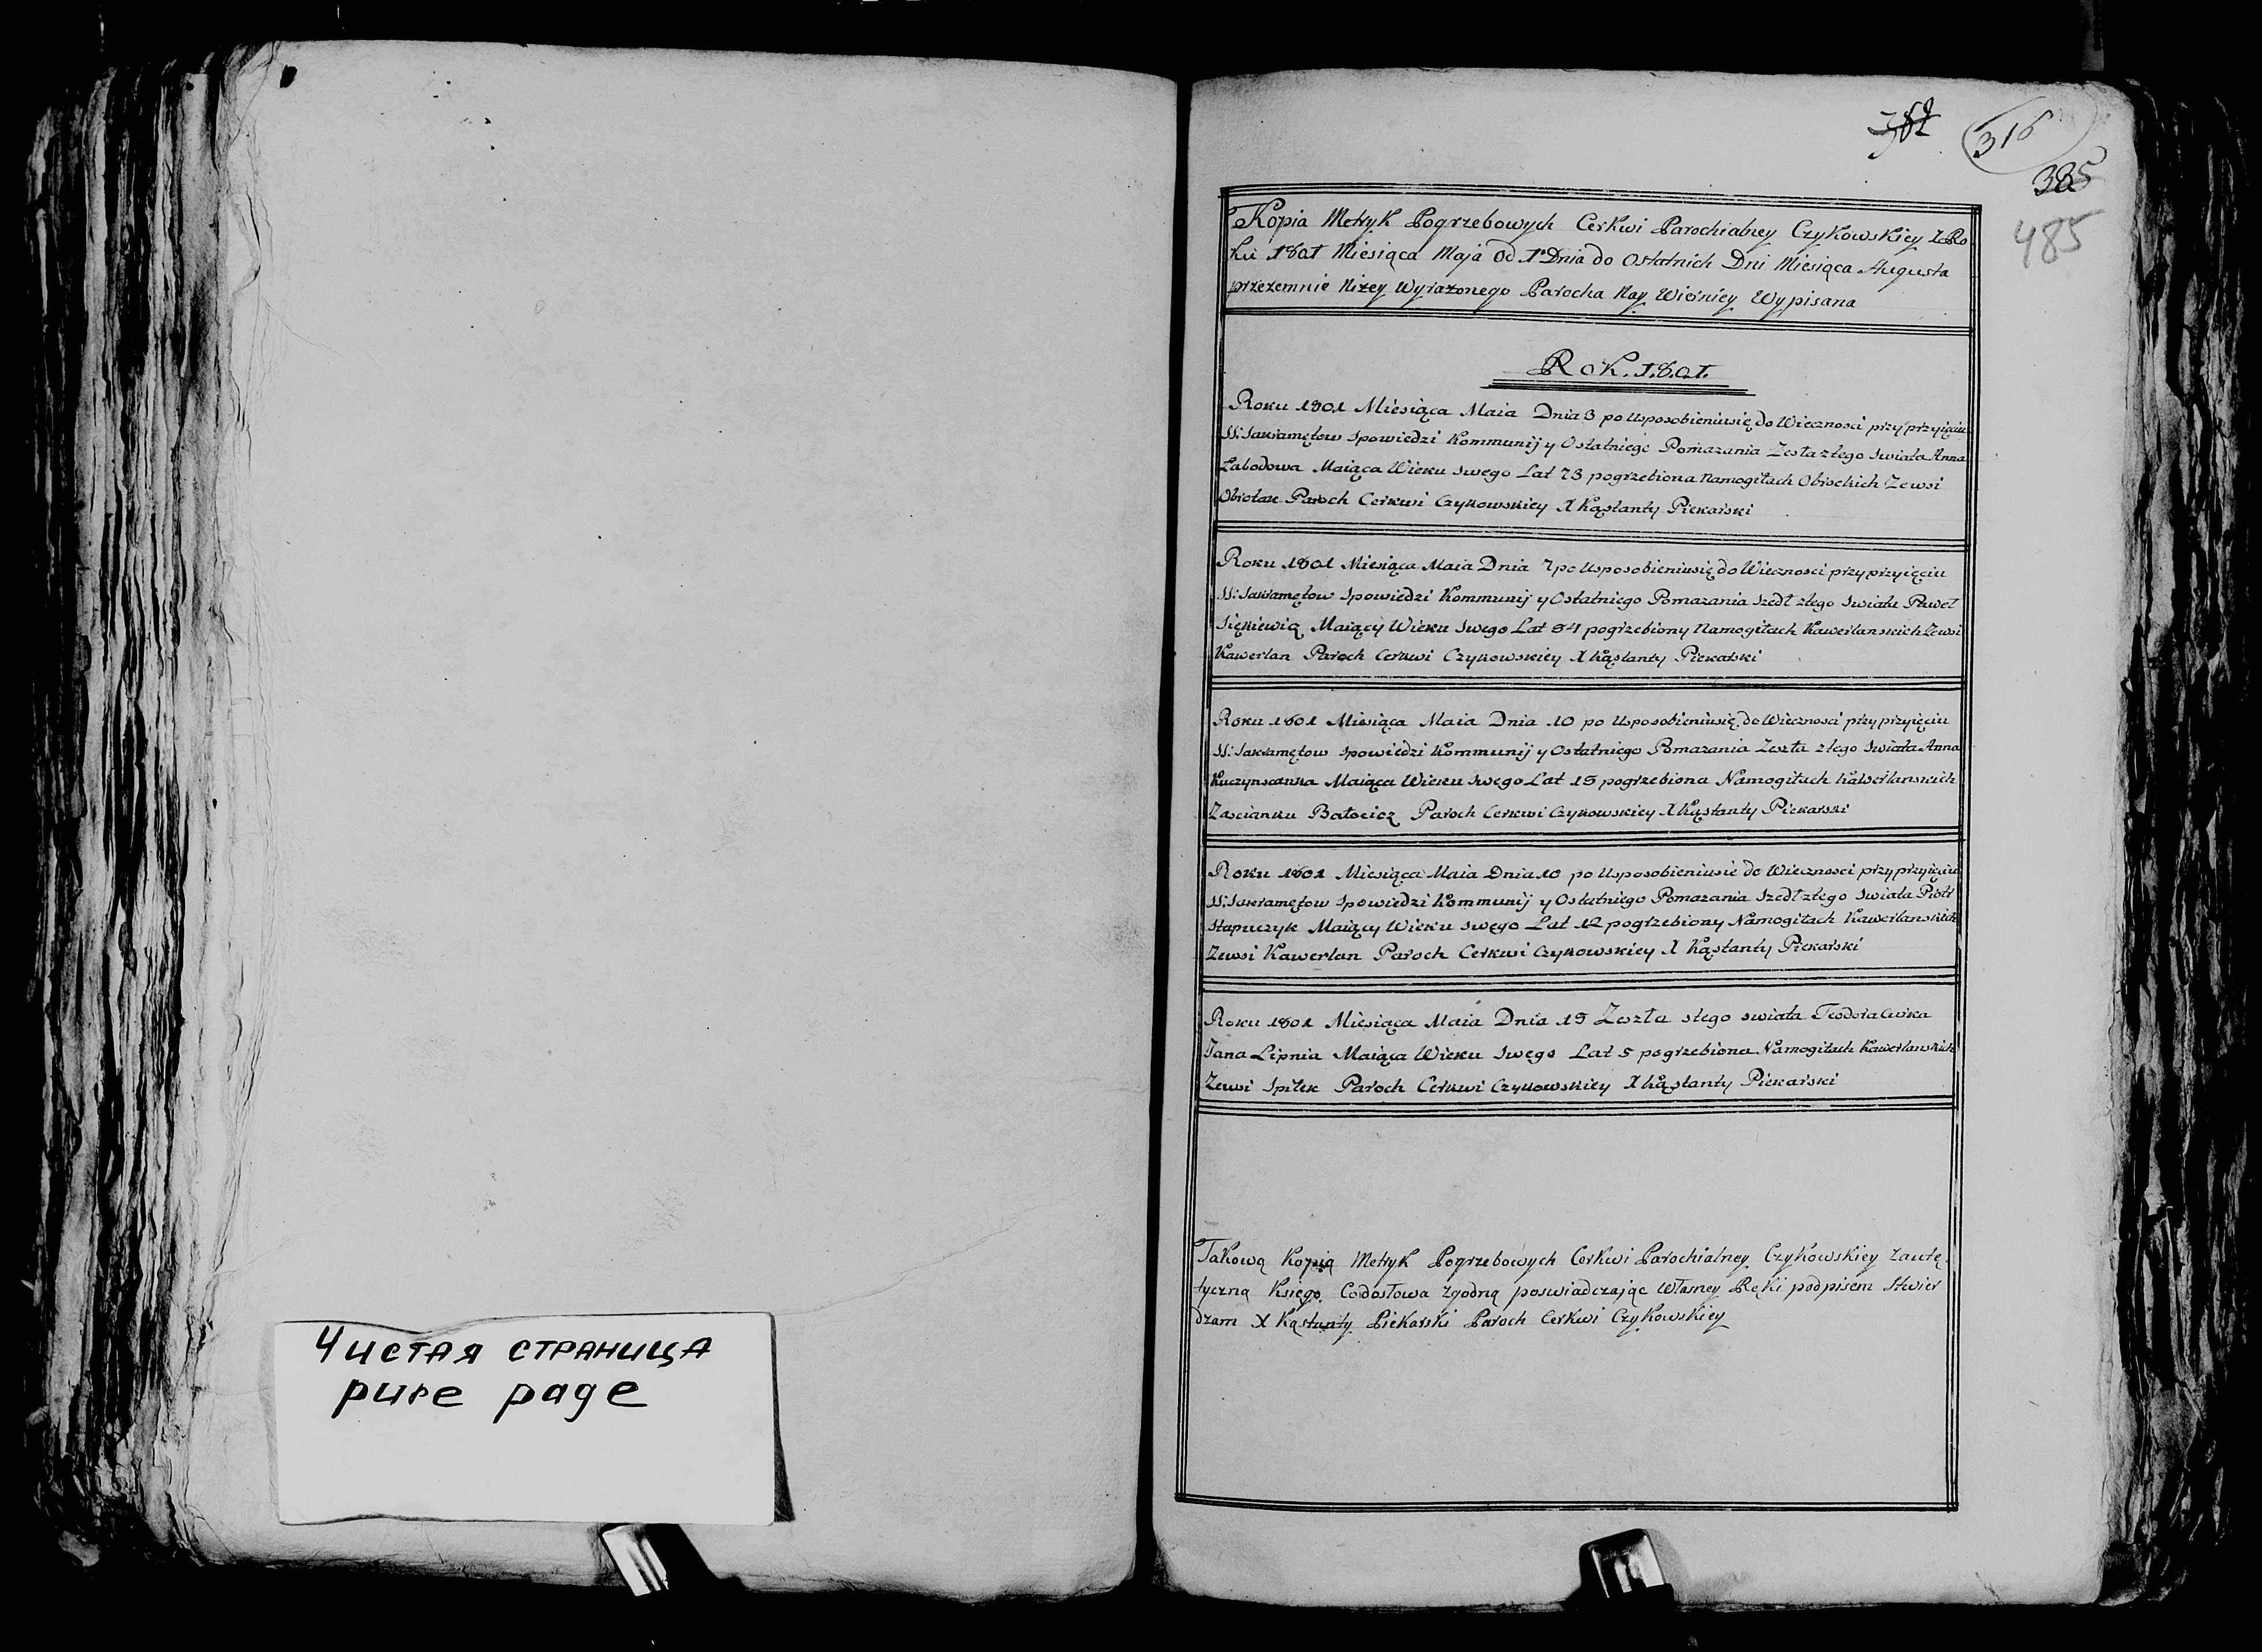 Чистая страница
pure page
316
385
485
Kopia Metryk Pogrzebowych Cerkwi Parochialney Czykowskiey z Ro
ku 1801 Miesiąca Maja Od 1 Dnia do Ostatnich Dni Miesiąca Augusta
przezemnie Niżey Wyrażonego Parocha Nay Wierniey Wypisana
Rok. 1.8.0.1.
Roku 1801 Miesiąca Maia Dnia 3 po Usposobieniusię do Wiecznosci przy przyięciu
SS: Sakramętow Spowiedzi Kommunij y Ostatniego Pomazania Zeszła złego Swiata Anna
Łabodowa Maiąca Wieku Swego Lat 73 pogrzebiona Namogiłach Obrockich Zewsi
Paroch Cerkwi Czykowskiey X Kąstanty Piekarski
Roku 1801 Miesiąca Maia Dnia 7 po Usposobieniusię do Wiecznosci przy przyięciu
SS: Sakramętow Spowiedzi Kommunij y Ostatniego Pomazania Szedł złego Swiata Paweł
Maiący Wieku Swego Lat 54 pogrzebiony Namogiłach Kawerlanskich Zewsi
Kawerlan Paroch Cerkwi Czykowskiey X Kąstanty Piekarski
Roku 1801 Miesiąca Maia Dnia 10 po Usposobieniusię do Wiecznosci przy przyięciu
SS: Sakramętow Spowiedzi Kommunij y Ostatniego Pomazania Zeszła złego Swiata Anna
Kuczynscanka Maiąca Wieku Swego Lat 15 pogrzebiona Namogiłach Kawerlanskich
Zascianku Paroch Cerkwi Czykowskiey X Kąstanty Piekarski
Roku 1801 Miesiąca Maia Dnia 10 po Usposobieniusie do Wiecznosci przy przyięciu
SS: Sakramętow Spowiedzi Kommunij y Ostatniego Pomazania Szedł złego Swiata Piotr
Stapuczyk Maiący Wieku swego Lat 12 pogrzebiony Namogiłach Kawerlanskich
Zewsi Kawerlan Paroch Cerkwi Czykowskiey X Kąstanty Piekarski
Roku 1801 Miesiąca Maia Dnia 15 Zeszła stego swiata Teodora Curka
Jana Lipnia Maiąca Wieku Swego Lat 5 pogrzebiona Namogiłach Kawerlanskich
Zewsi Spilek Paroch Cerkwi Czykowskiey X Kąstanty Piekarski
Takową Kopią Metryk Pogrzebowych Cerkwi Parochialney Czykowskiey zautę
tyczną Księgo Codosłowa Zgodną poswiadczając Własney Ręki podpisem Stwier
dzam X Kąstanty Piekarski Paroch Cerkwi Czykowskiey